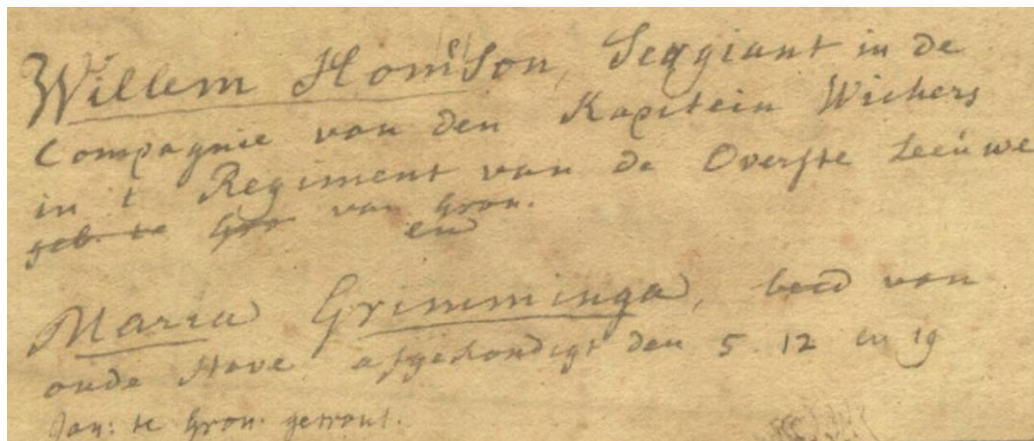 Willem Homsson, Seggiant in de
Compagnie van den Kapitein Wichers
in t Regiment van de Overste Leeuwe
geb. te Gro van Gron.
en
Maria Grimminga, beid van
oude Hove afgekondigt den 5 12 en 19
Jan: te Gron. getrout.